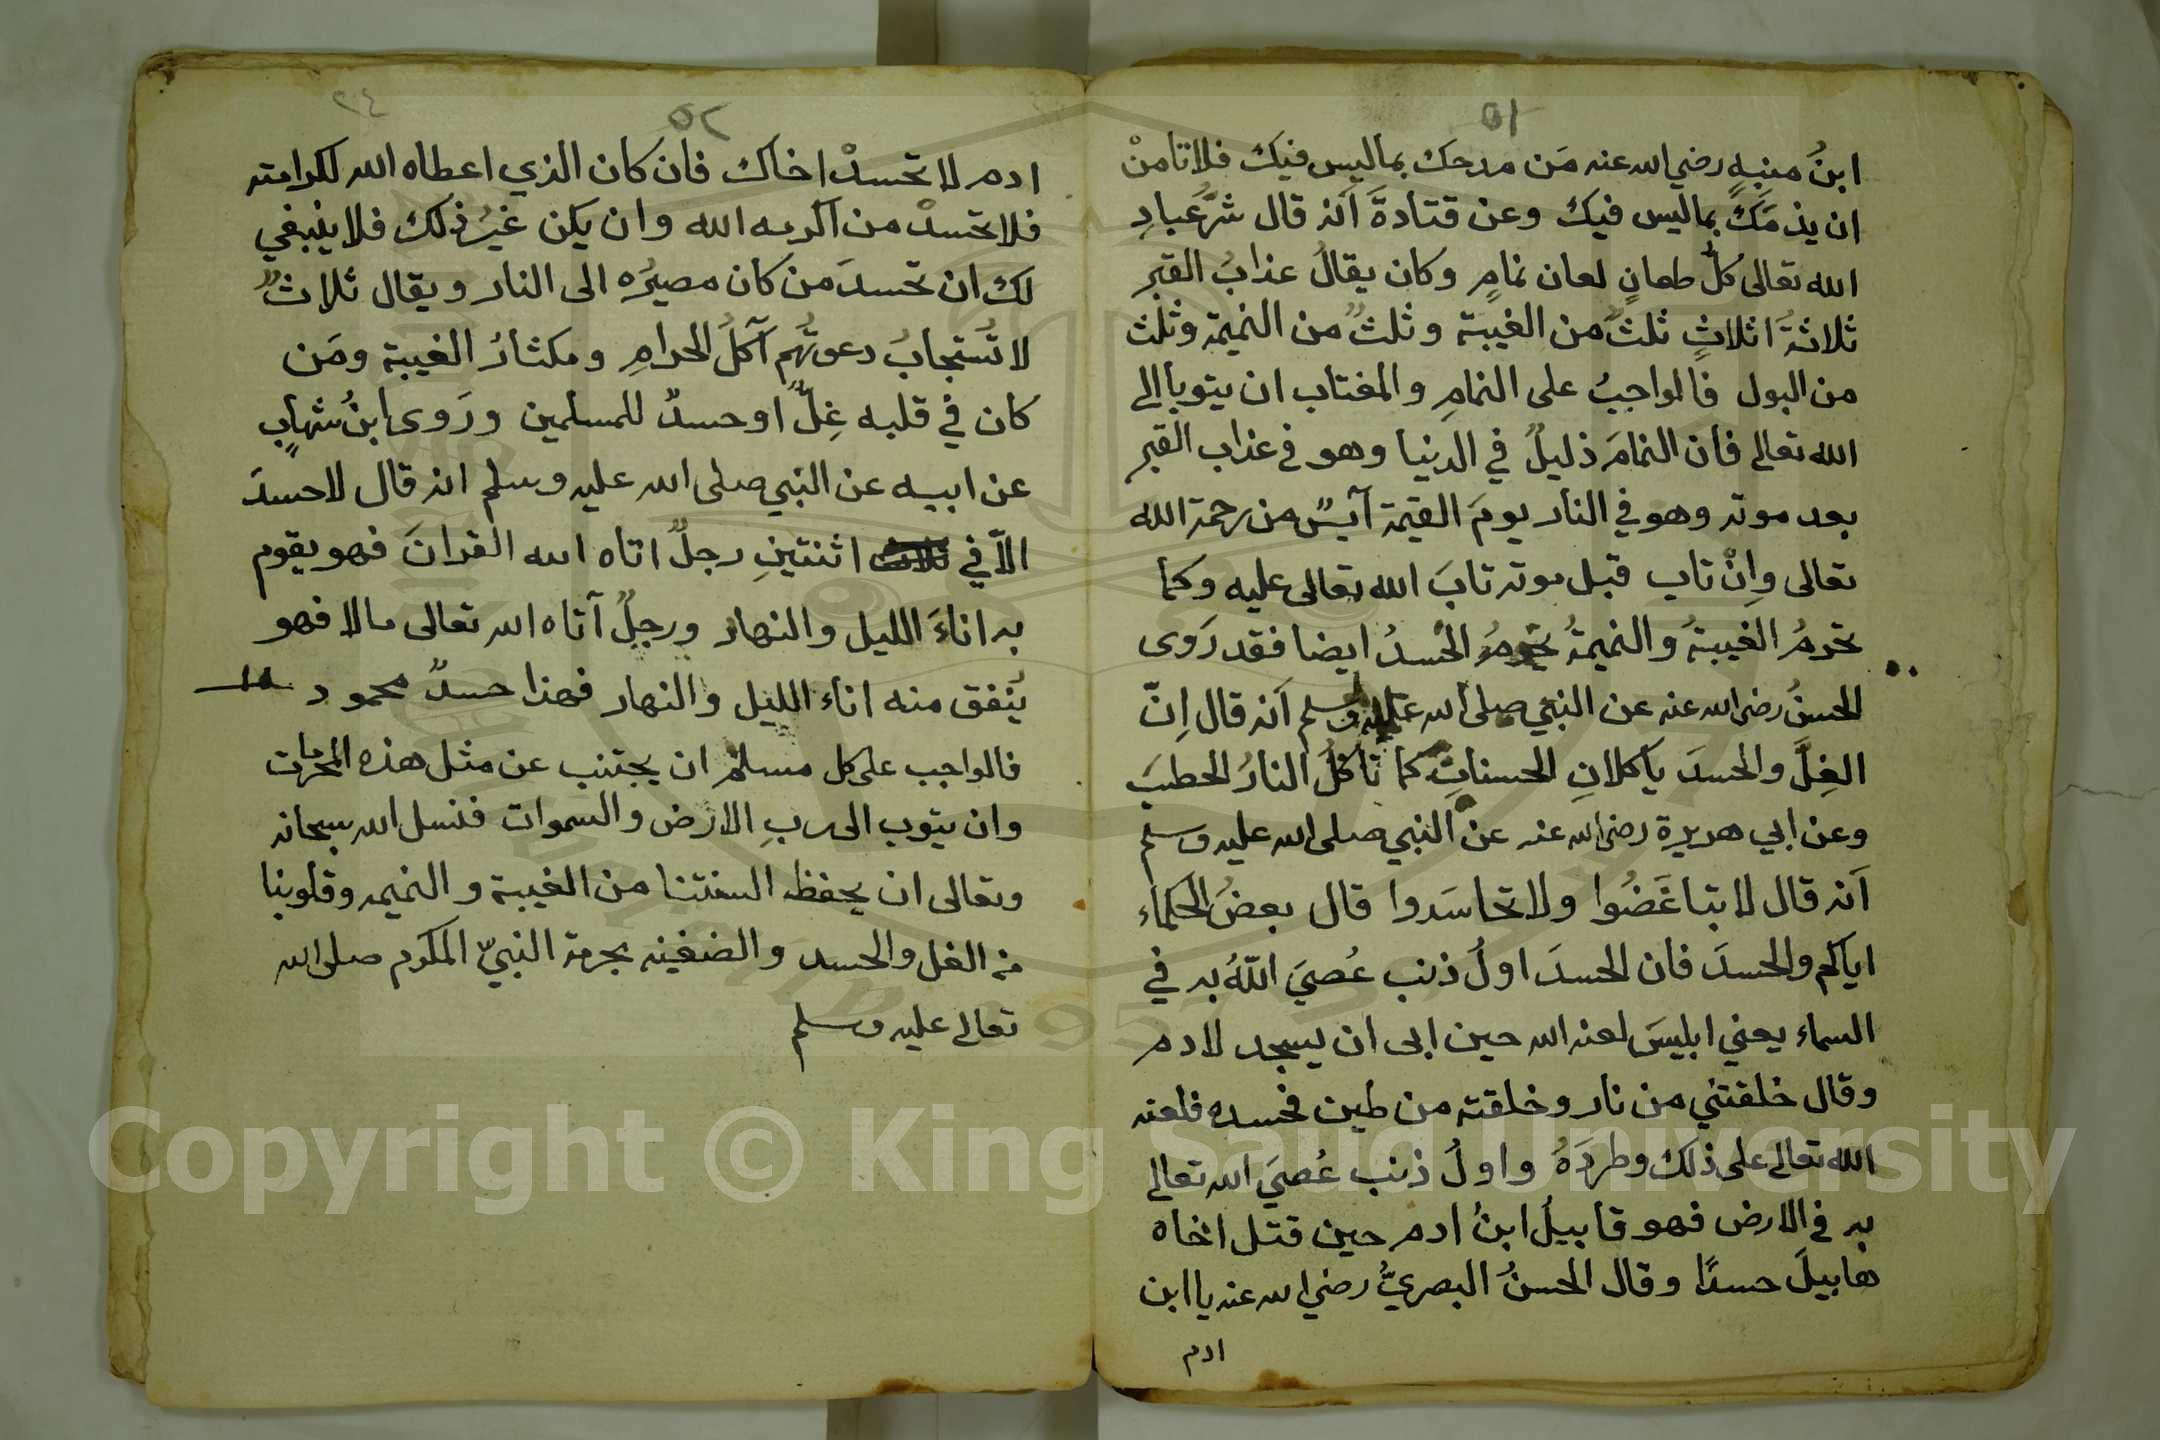 ٥١
ابنُ منبهٍ رضي الله عنه مَن مدحك بماليس فيك فلاتامنْ
ان يذمَكَ بماليس فيك وعن قتادةَ اَنه قال شرُّ عبادِ
الله تعالى كلُّ طعانٍ لعان نمامٍ وكان يقالُ عذابُ القبر
ثلاثةُ اثلاثٍ ثلثٌ من الغيبة وثلثٌ من النميمة وثلث
من البول فالواجبُ على النمامِ والمغتاب ان يتوبا الى
الله تعالى فان النمامَ ذليلٌ في الدنيا وهو في عذاب القبر
بعد موته وهو في النار يومَ القيمة آيسٌ من رحمة الله
تعالى واِنْ تاب قبل موته تابَ الله تعالى عليه وكما
تحرمُ الغيبةُ والنميمةُ تحرمُ الحسدُ ايضا فقد رَوى
الحسنُ رضي الله عنه عن النبي صلى الله عليه وسلم اَنه قال اِنّ
الغِلَّ والحسدَ ياكلانِ الحسناتِ كما تاكلُ النارُ الحطبَ
وعن ابي هريرة رضي الله عنه عن النبي صلى الله عليه وسلم
اَنه قال لا تباغَضُوا ولا تحاسَدوا قال بعضُ الحكماء
اياكم والحسدَ فان الحسدَ اولُ ذنب عُصيَ اللهُ به في
السماء يعني ابليسَ لعنه الله حين ابى ان يسجد لادم
وقال خلقتني من نار وخلقته من طين فحسده فلعنه
الله تعالى على ذلك وطردَهُ واولُ ذنب عُصيَ الله تعالى
به في الارض فهو قابيلُ ابنُ ادم حين قتل اخاه
هابيلَ حسدًا وقال الحسنُ البصريُّ رضي الله عنه يا ابن
ادم
٢٤
٥٢
ادم لا تحسدْ اخاك فان كان الذي اعطاه الله لكرامته
فلا تحسدْ من اكرمه الله وان يكن غيرُ ذلك فلا ينبغي
لك ان تحسدَ من كان مصيرُه الى النار ويقال ثلاثٌ
لا تُستجابُ دعوتُهم آكلُ الحرامِ ومكثارُ الغيبة ومَن
كان في قلبه غِلٌّ او حسدٌ للمسلمين ورَوى ابنُ شهابٍ
عن ابيه عن النبي صلى الله عليه وسلم انه قال لا حسدَ
الاّ في ثلاث اثنتينِ رجلٌ اتاه الله القرانَ فهو يقوم
به اناءَ الليل والنهار ورجلٌ آتاه الله تعالى مالا فهو
يُنفق منه اناء الليل والنهار فهذا حسدٌ محمود
فالواجب على كل مسلم ان يجتنب عن مثل هذه المحرمات
وان يتوب الى ربِ الارض والسموات فنسل الله سبحانه
وتعالى ان يحفظ السنتنا من الغيبة والنميمه وقلوبنا
من الغل والحسد والضغينه بحرمة النبيّ المكرم صلى الله
تعالى عليه وسلم
Copyright © King Saud University